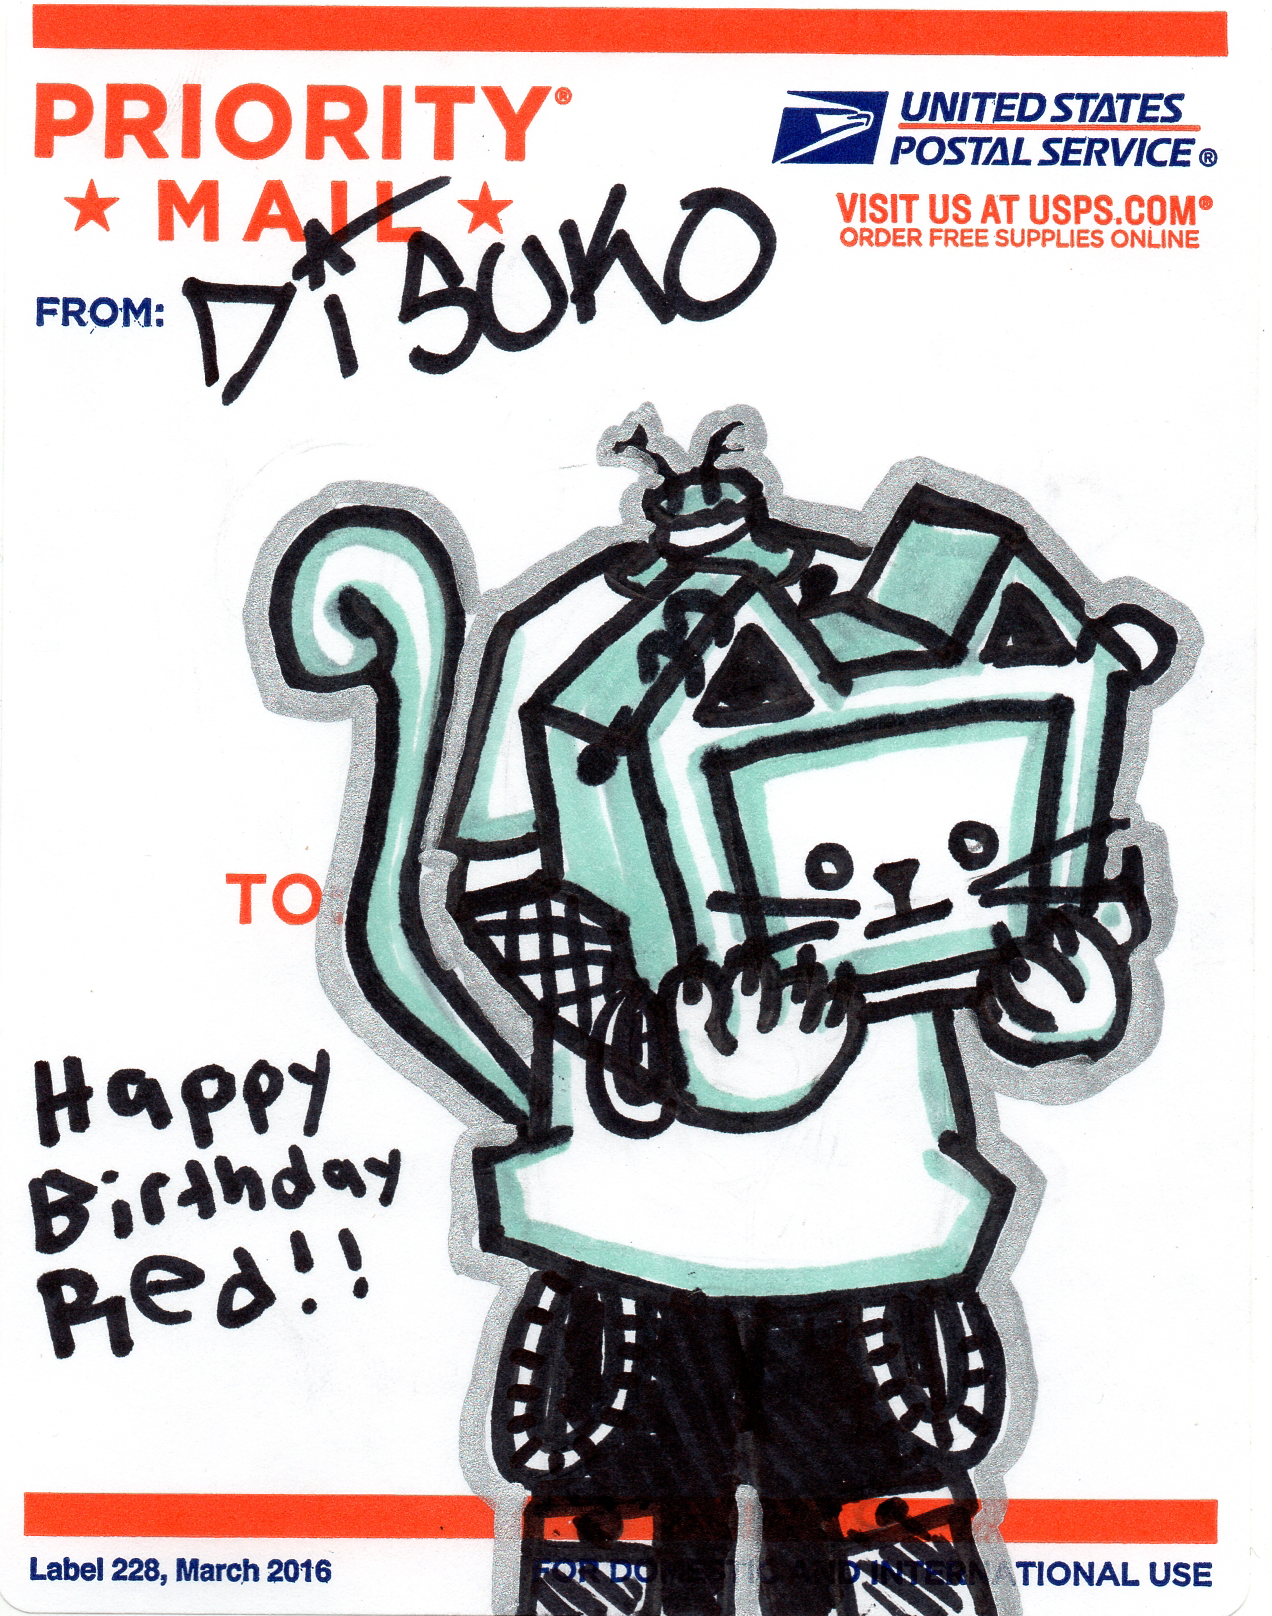 PRIORITY®
★ MAIL ★
UNITED STATES
POSTAL SERVICE®
VISIT US AT USPS.COM®
ORDER FREE SUPPLIES ONLINE
FROM: DiTSUKO
TO:
Happy
Birthday
Red!!
Label 228, March 2016
FOR DOMESTIC AND INTERNATIONAL USE